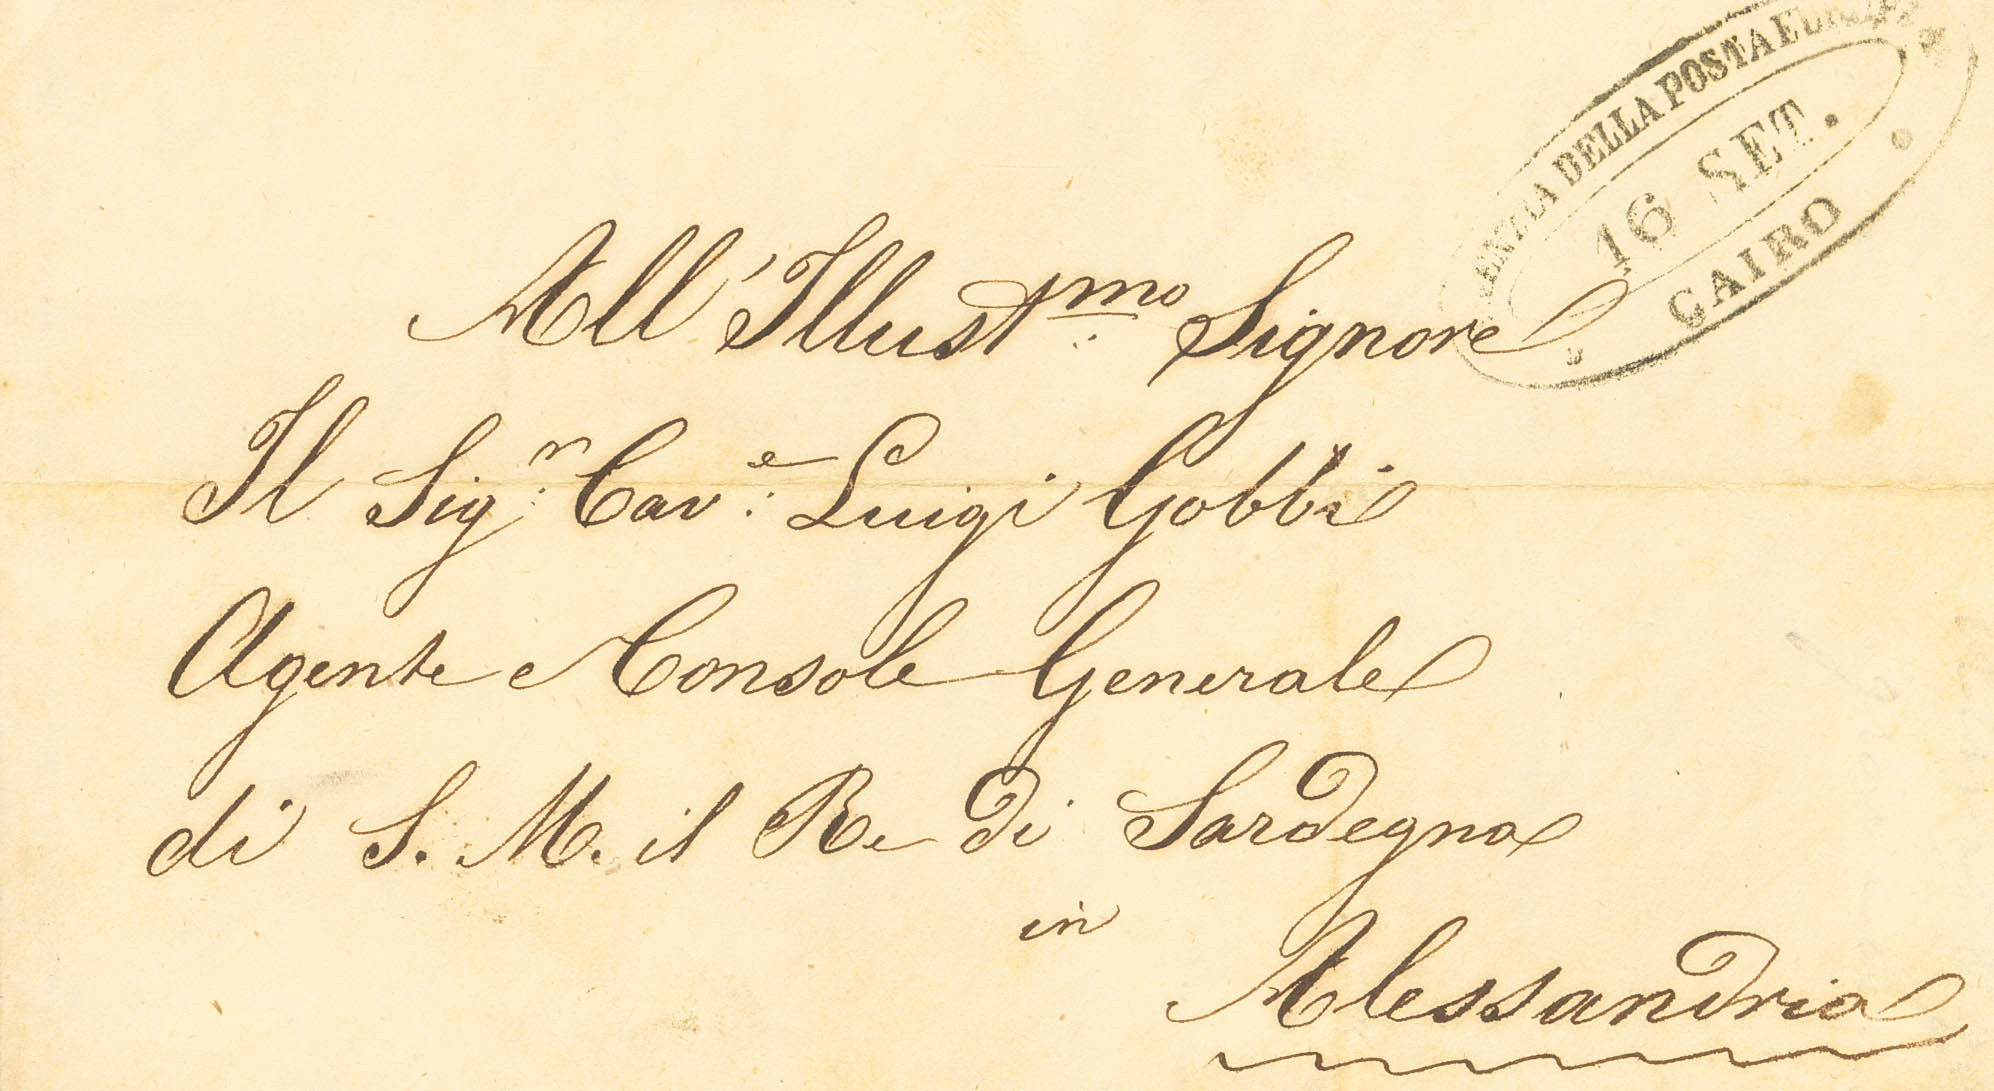 DELLA POSTA
16 SET.
CAIRO
All'Illustmo Signore
Il Sigr: Cave: Luigi Gobbi
Agente e Console Generale
di S. M. il Re di Sardegna
in
Alessandria